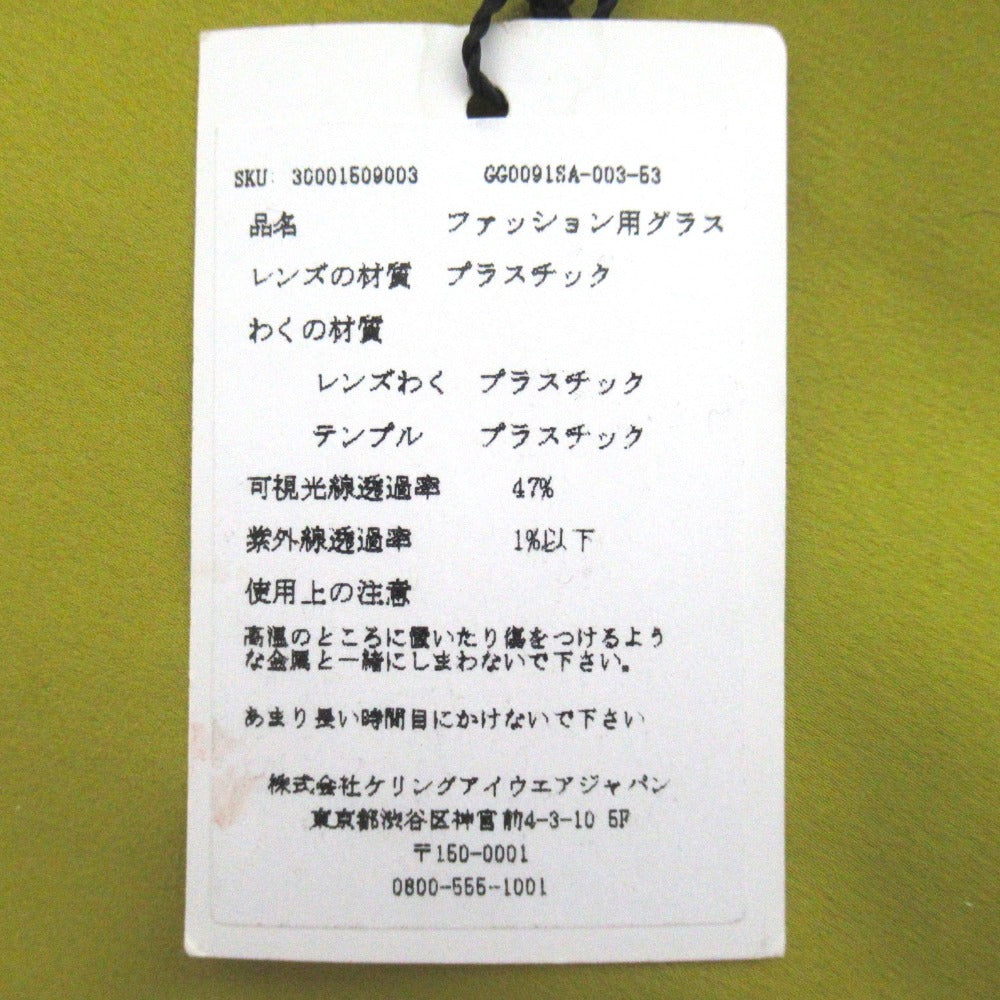 SKU: 30001509003 GG0091SA-003-53
品名 ファッション用グラス
レンズの材質 プラスチック
わくの材質
レンズわく プラスチック
テンプル プラスチック
可視光線透過率 47%
紫外線透過率 1%以下
使用上の注意
高温のところに置いたり傷をつけるよう
な金属と一緒にしまわないで下さい。
あまり長い時間目にかけないで下さい
株式会社ケリングアイウエアジャパン
東京都渋谷区神宮前4-3-10 5F
〒150-0001
0800-555-1001